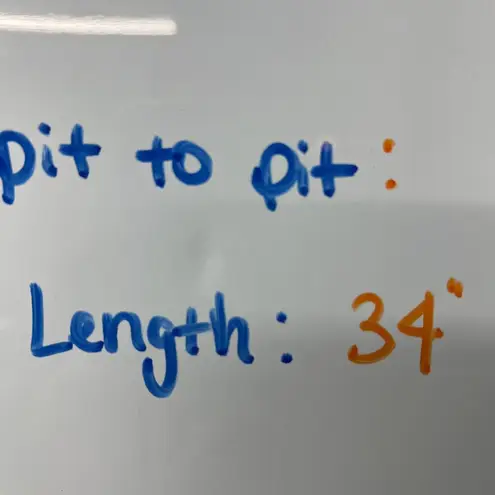 pit to pit:
Length: 34"